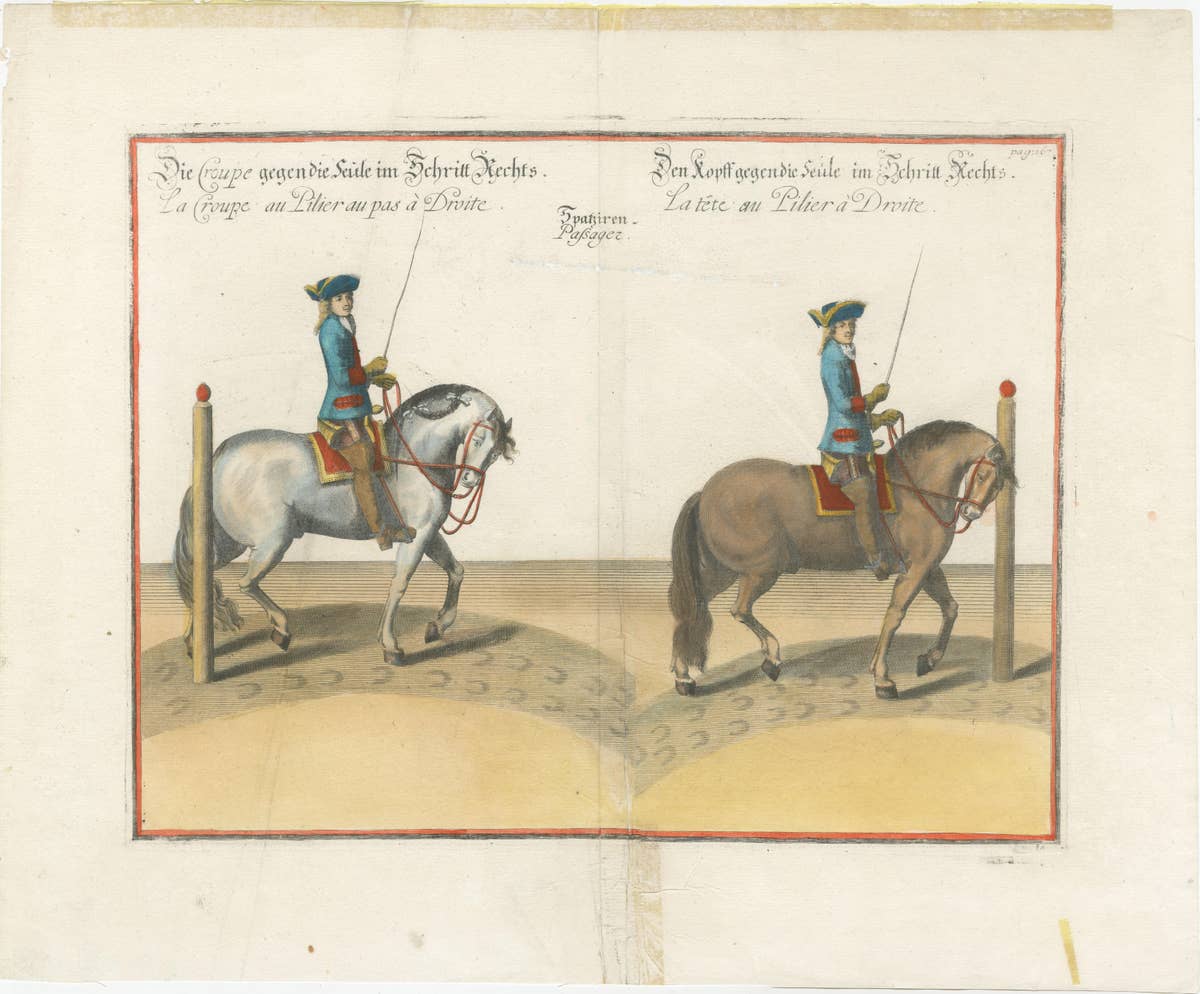 Die Croupe gegen die Seüle im Schritt Rechts.
La Croupe au Pilier au pas à Droite.
Den Kopff gegen die Seüle im Schritt Rechts.
La tête au Pilier à Droite.
Spatziren-
Paßager.